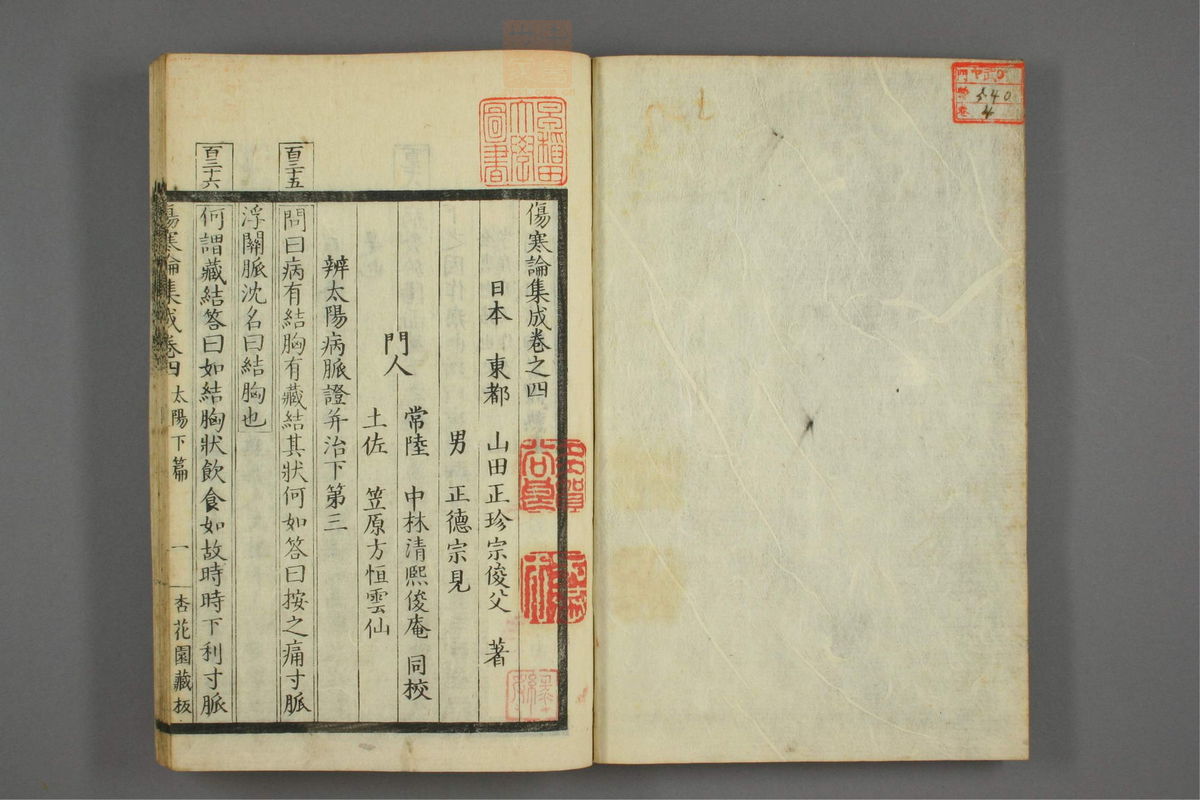 傷寒論集成卷之四
日本 東都 山田正珍宗俊父 著
男 正德宗見
常陸 中林清熙俊庵 同挍
門人
土佐 笠原方恒雲仙
辨太陽病脈證并治下第三
百三十五
問曰病有結胸有藏結其狀何如答曰按之痛寸脈
浮關脈沈名曰結胸也
百三十六
何謂藏結答曰如結胸狀飲食如故時時下利寸脈
傷寒論集成卷四 太陽下篇 一 杏花園藏板
早稻田
大學
圖書
540
4